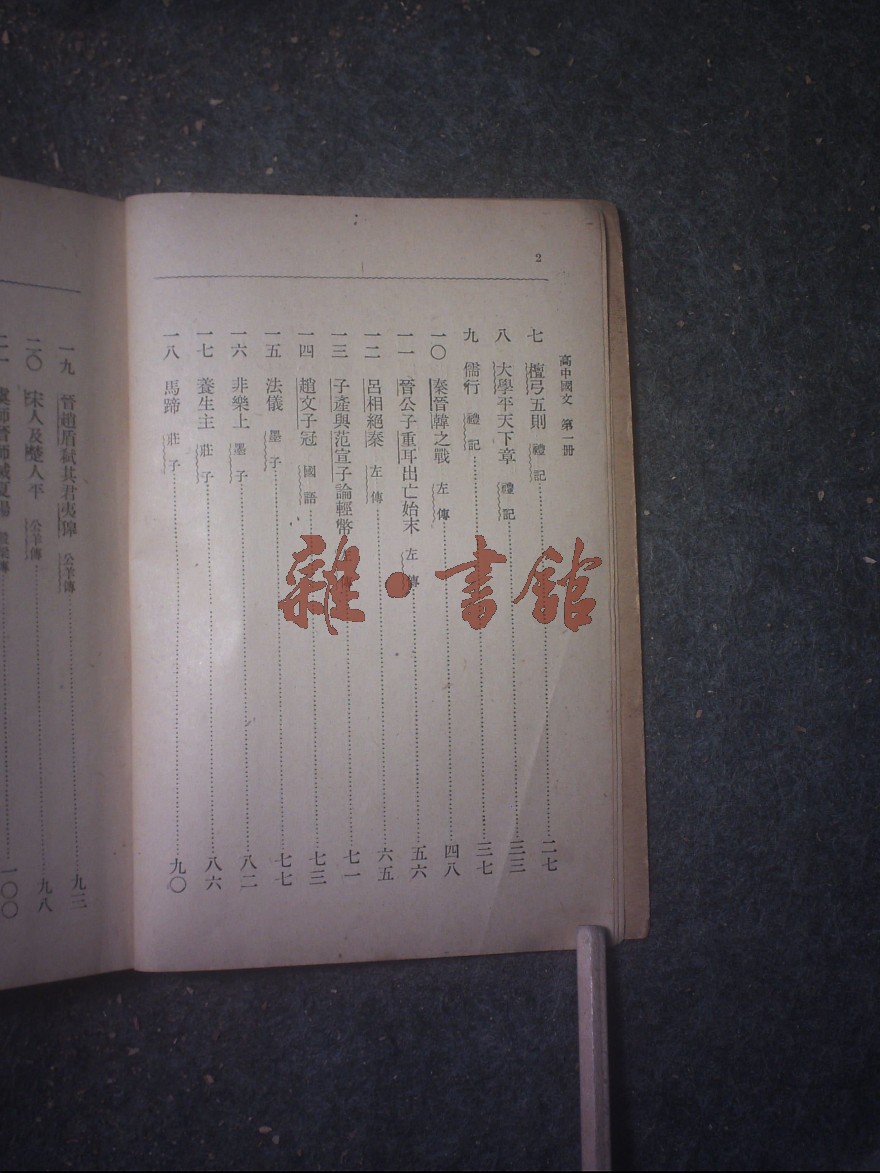 2
高中國文 第一冊
七 檀弓五則 禮記 二七
八 大學平天下章 禮記 三三
九 儒行 禮記 三七
一〇 秦晉韓之戰 左傳 四八
一一 晉公子重耳出亡始末 左傳 五六
一二 呂相絕秦 左傳 六五
一三 子產與范宣子論輕幣 七一
一四 趙文子冠 國語 七三
一五 法儀 墨子 七七
一六 非樂上 墨子 八二
一七 養生主 莊子 八六
一八 馬蹄 莊子 九〇
一九 晉趙盾弒其君夷獔 公羊傳 九三
二〇 宋人及楚人平 公羊傳 九八
一〇〇
雜·書館